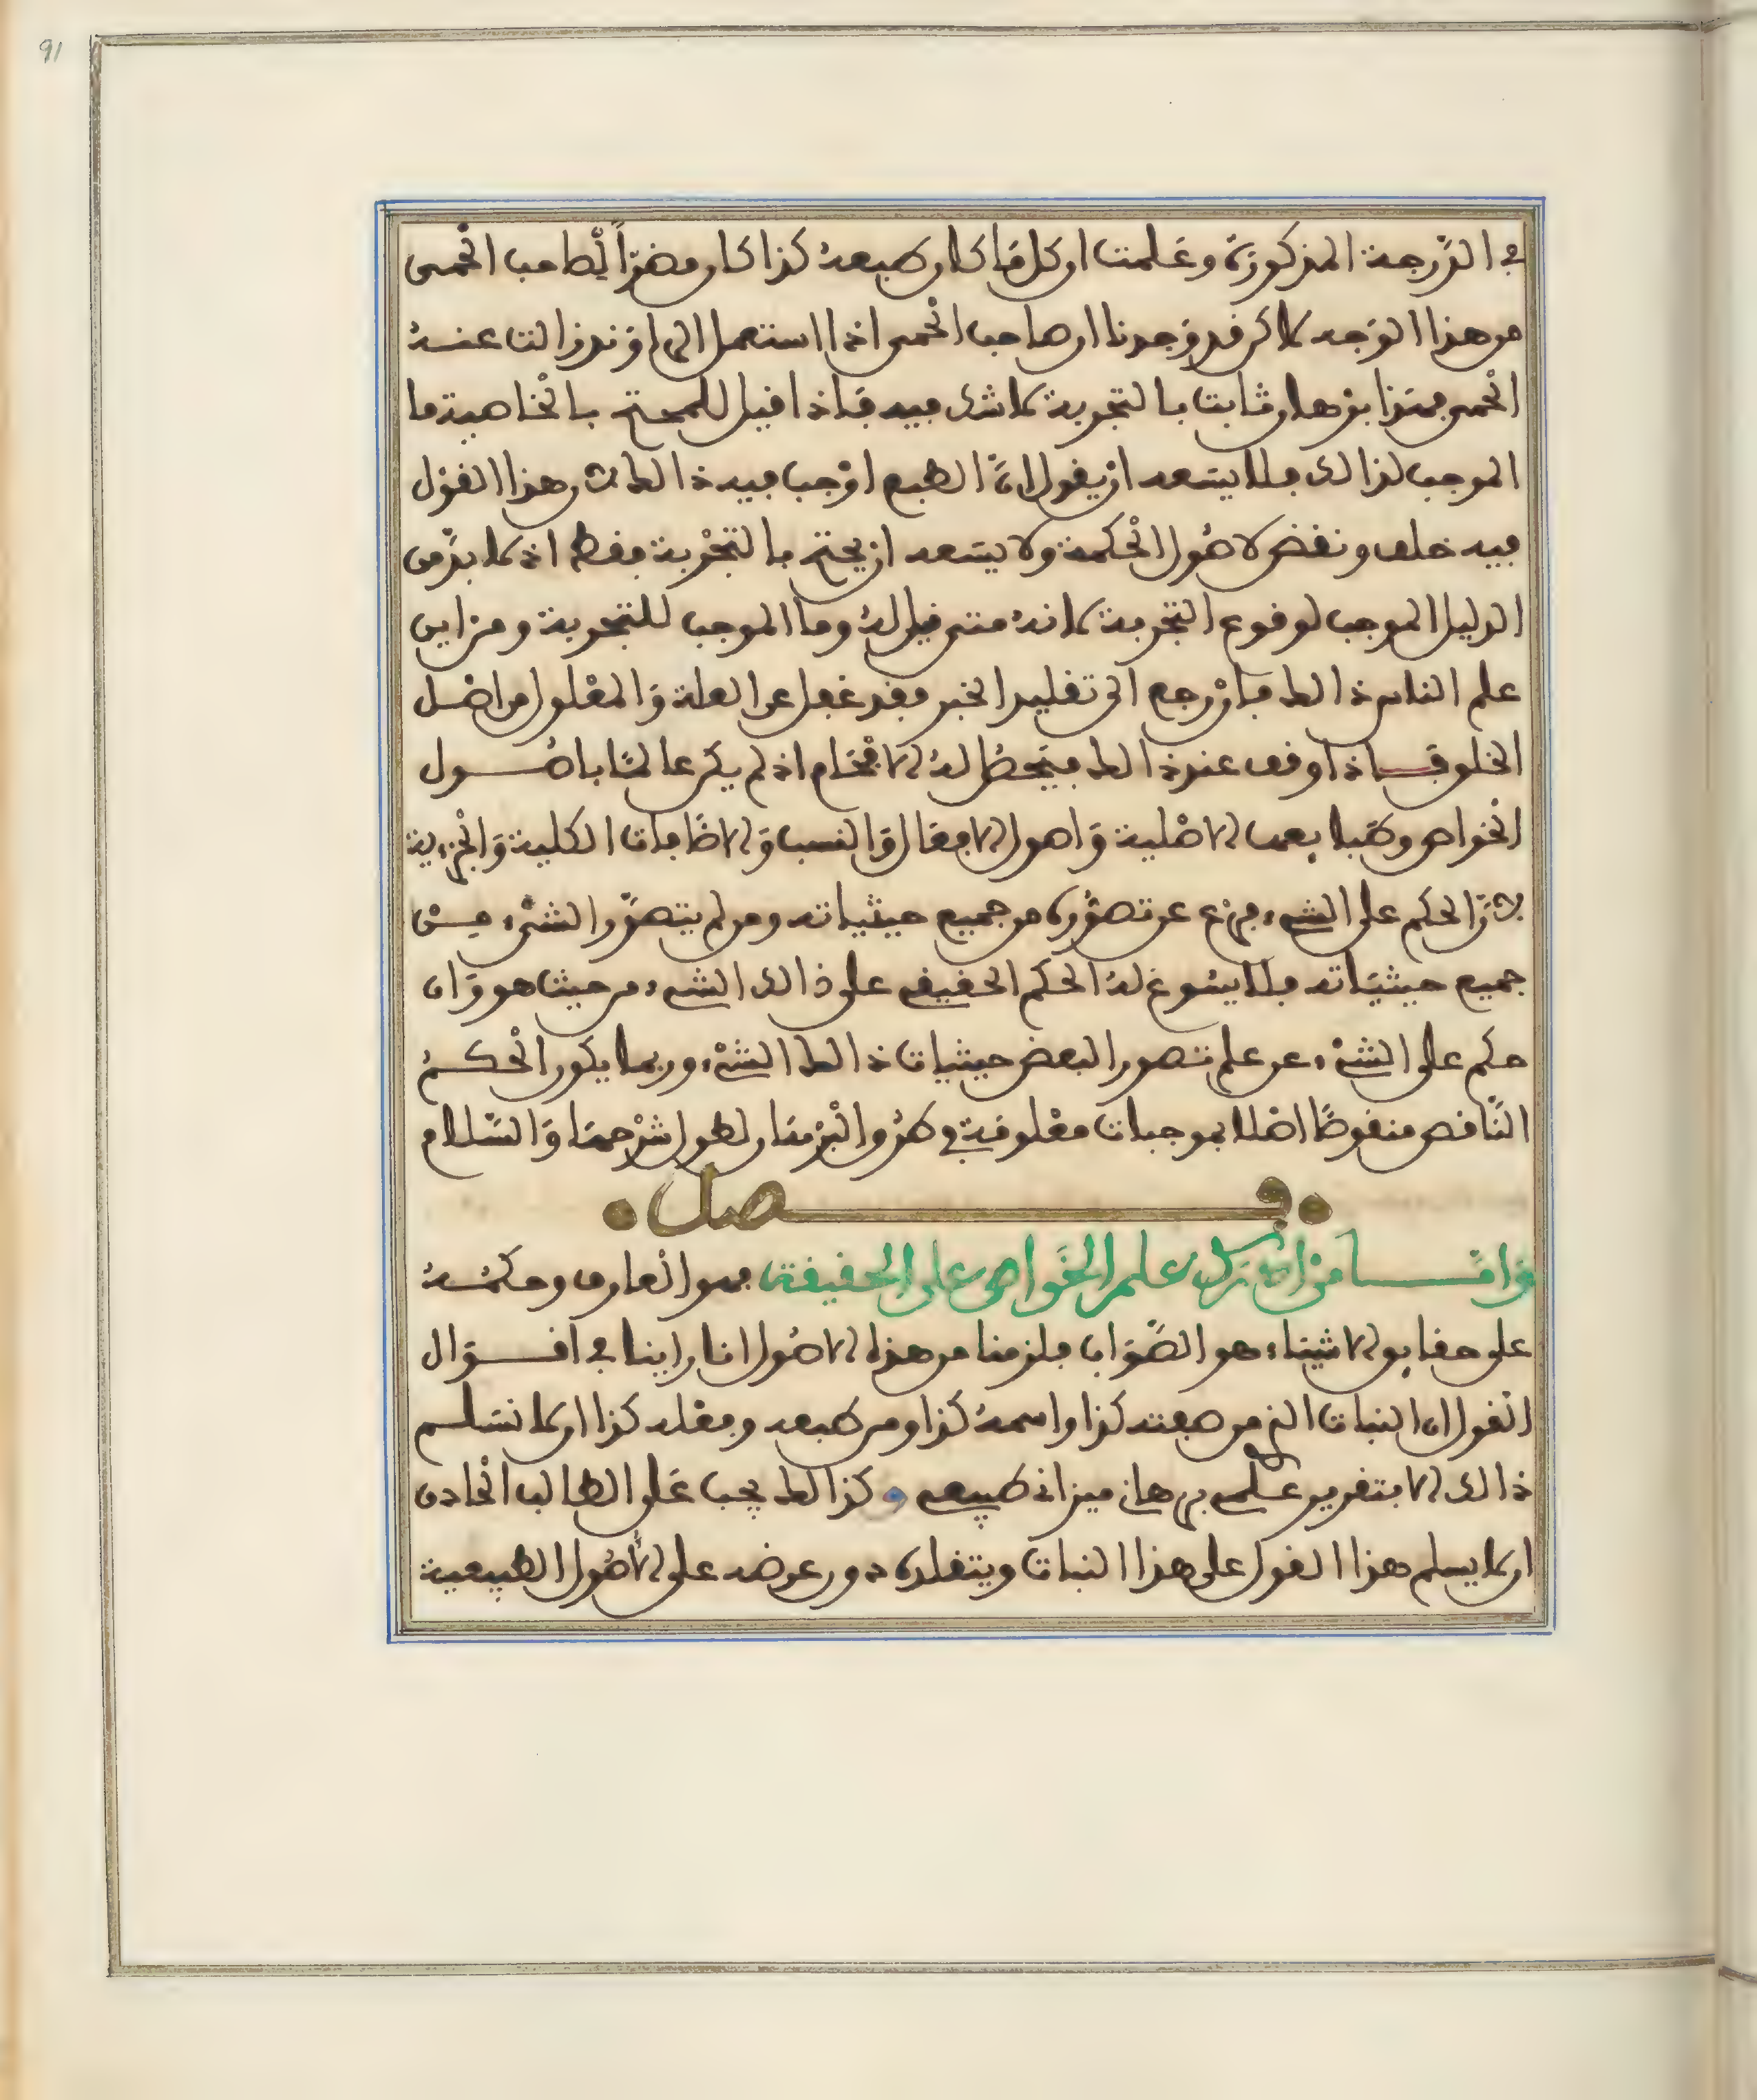 91
في الدَّرجة المذكورَة وعَلمت ان كل مَا كان طبعهُ كذا كان مضرًّا لصاحب الحُمى
من هذا الوَجه لاكن قد وَجدنا ان صاحب الحُمى اذا استعمل الراوَند زالت عنهُ
الحُمى فهَذا برهان ثابت بالتجربة لا شك فيه فَاذا قيل للمحتج بالخاصية ما
الموجب لذالك فلا يسَعه ان يقول انَّ الطبع اوْجب فيه ذالك لان هذا القوْل
فيه خلف ونقض لاصُول الحكمة ولا يسَعه ان يحتج بالتجْربة فقط اذ لا بدَّ من
الدليل الموجب لوقوع التجربة لانهُ متى قيل لهُ وما الموجب للتجربة ومن اين
علم الناس ذالك فاِنْ رجع الى تقليد الخبر فقد غفل عن العلة وَالمعْلول من اصْل
الخلق فَاذا وقف عند ذالك فيَحصُل لهُ الافْحَام اذ لم يكن عالمًا باصُول
الخواص وطبايعها الاصْلية وَاصول الافعَال وَالنسب وَالاضَافات الكلية وَالجزءية
لانَّ الحكم على الشيء فرع عن تصوُّره من جميع حيثياته ومن لم يتصوَّر الشيْء مِن
جميع حيثيَاته فلا يسُوغ لهُ الحكم الحقيقي على ذالك الشيء من حيث هو وَان
حكم على الشيْء عن علم تصور البعض حيثيات ذالك الشيْء وربما يكون الحكمُ
النَّاقص منقوضًا اصْلا بموجبات معْلومَة في طرُق البرْهَان لطول شرْحهَا وَالسَّلام
فصل
وَامَّا من ادرَك علم الخَواص على الحقيقة فهو العَارف وحكمُهُ
على حقايق الاشيَاء هو الصَّوَاب فلزمنا من هذه الاصُول انا راينا في اقوَال
القول ان النبات الذي صفته كذا واسمهُ كذا ومن طبعه وفعْله كذا ان لا نسَلم
ذالك الا بتقرير علمي برهاني ميزاني طبيعي وكذالك يجب عَلى الطالب الحاذق
ان لا يسلم هذا القول على هذا النبات ويتقلده دون عرضه على الاصُول الطبيعية